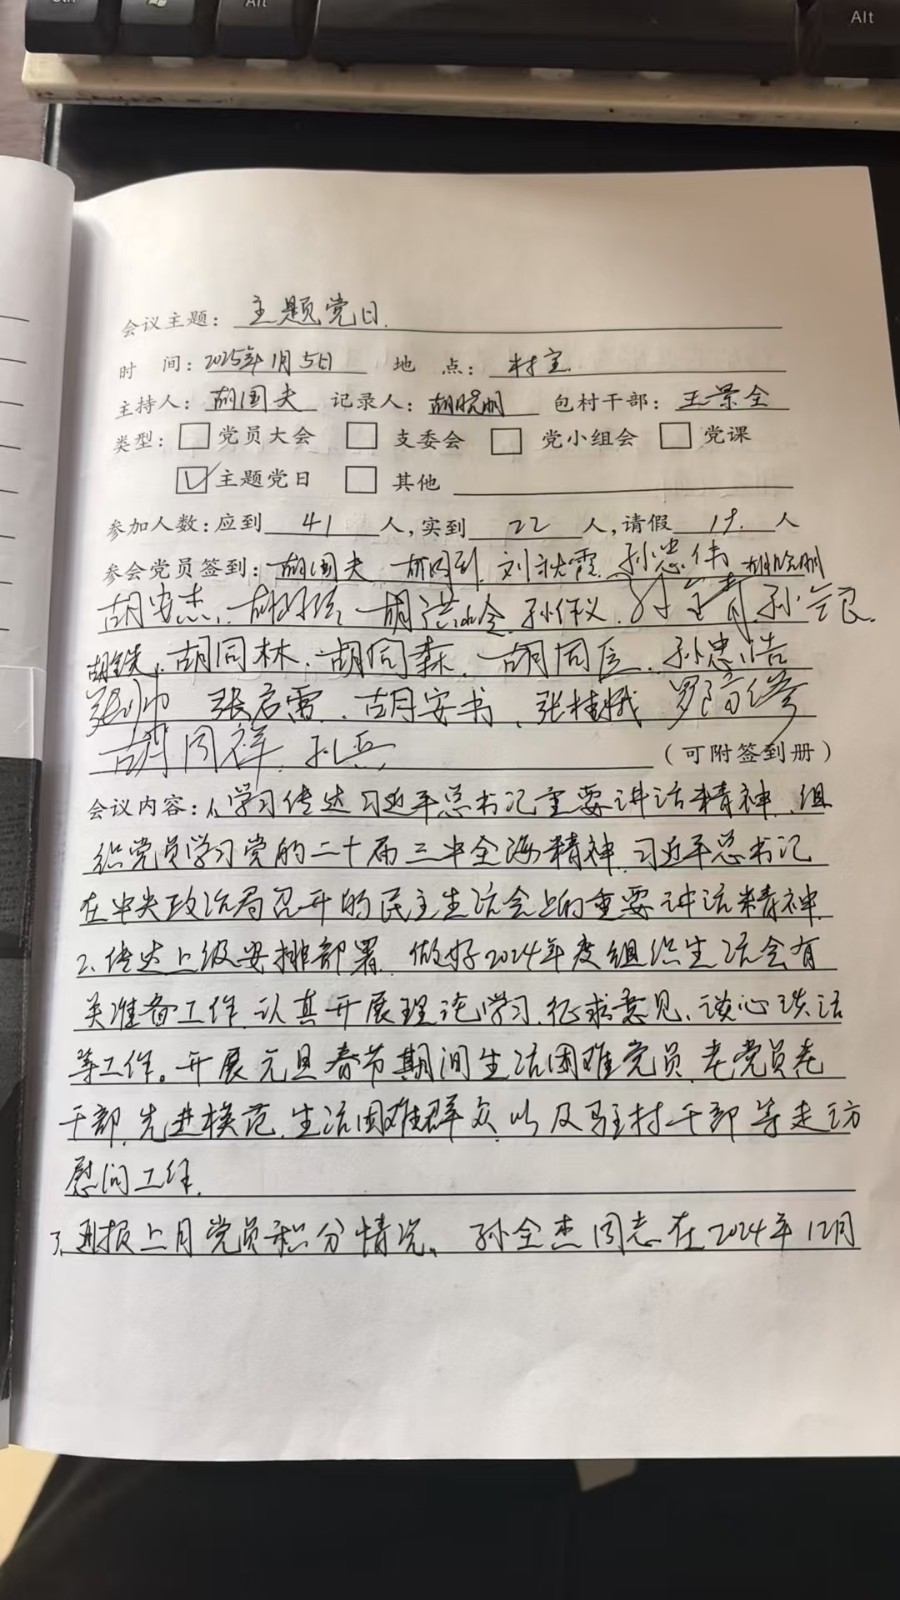 Alt
Alt
会议主题：主题党日
时 间：2025年1月5日 地 点：村室
主持人：胡国夫 记录人：胡晓朋 包村干部：王景全
类型：□党员大会 □支委会 □党小组会 □党课
☑主题党日 □其他
参加人数：应到 41 人，实到 22 人，请假 19 人
参会党员签到：胡国夫 刘秋霞 孙忠伟 胡晓朋
胡安杰 孙作义
胡同林 胡同森 胡同信 孙忠浩
张帅 张启雷 胡安书 张桂娥
胡同祥 孙兵 （可附签到册）
会议内容：1、学习传达习近平总书记重要讲话精神、组
织党员学习党的二十届三中全海精神、习近平总书记
在中央政治局召开的民主生活会上的重要讲话精神
2、传达上级安排部署、做好2024年度组织生活会有
关准备工作、认真开展理论学习、征求意见、谈心谈话
等工作。开展元旦春节期间生活困难党员、老党员老
干部、先进模范、生活困难群众、以及驻村干部等走访
慰问工作.
3、通报上月党员积分情况、孙全杰同志在2024年12月